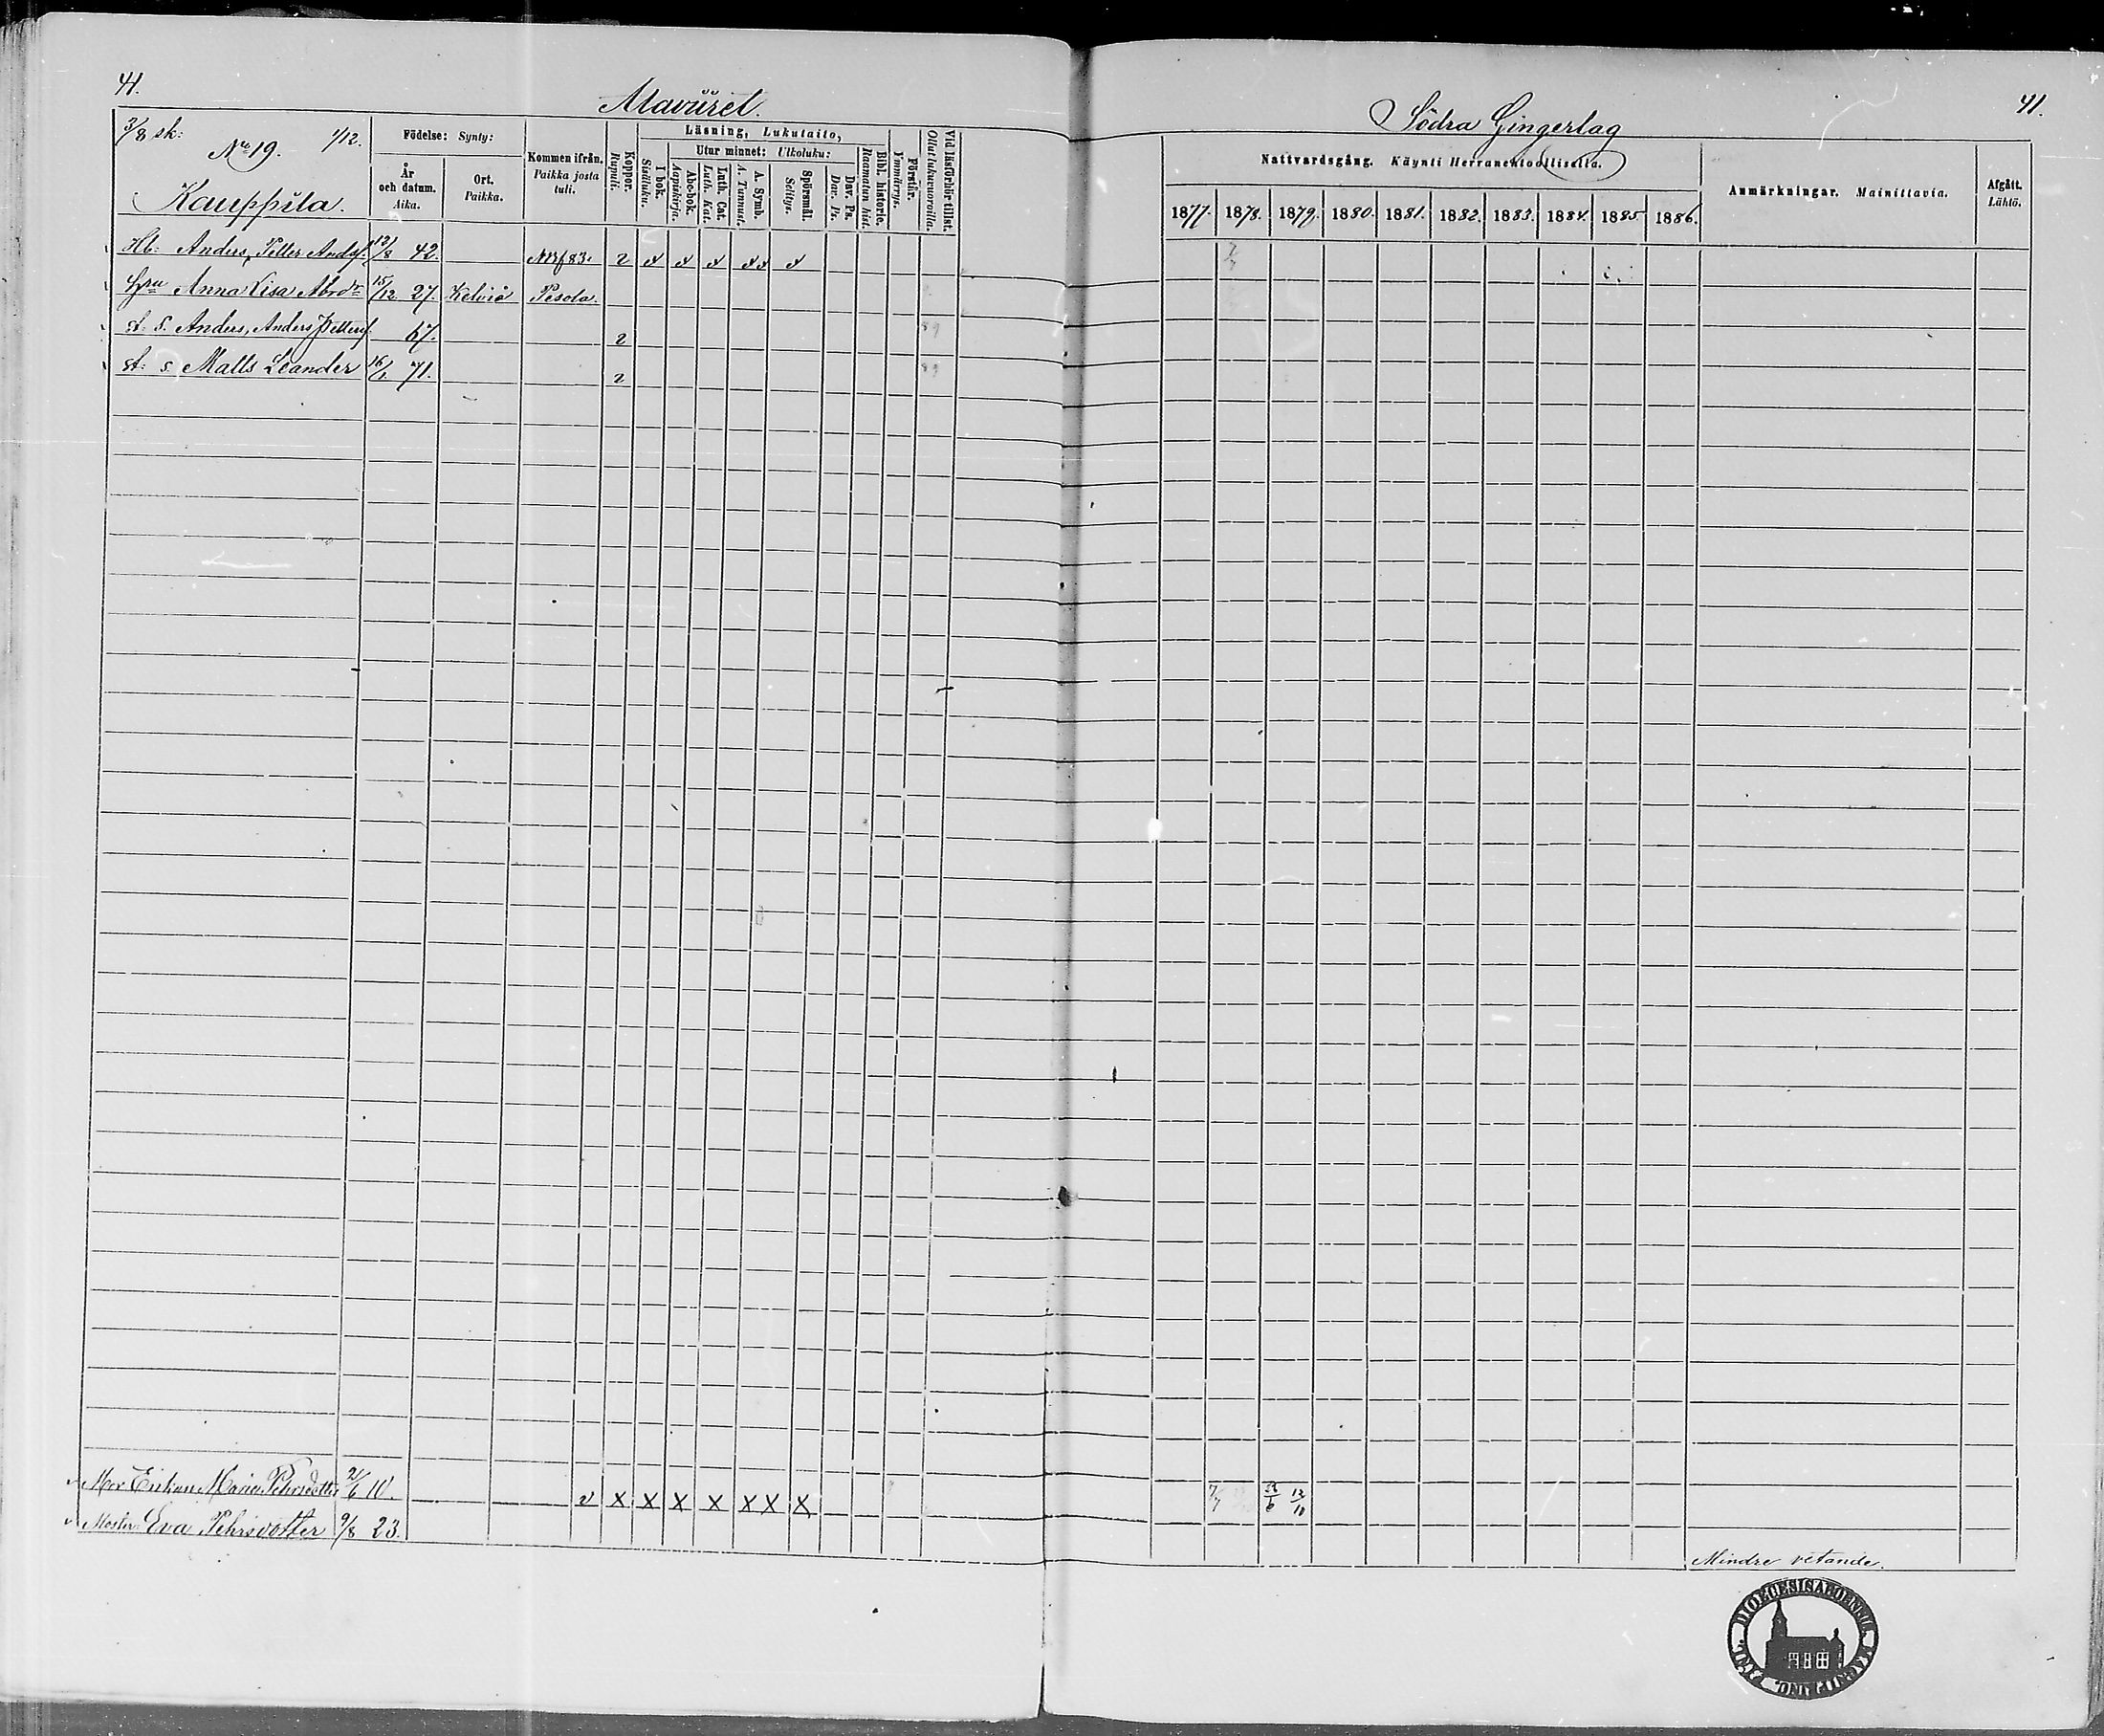 41.
Alaviiret.
3/8 sk: No 19. 1/12.
Kauppila.
Födelse: Synty:
År och datum. Aika.
Ort. Paikka.
Kommen ifrån. Paikka josta tuli.
Koppor. Rupuli.
Läsning, Lukutaito,
I bok. Sisäluku.
Utur minnet: Ulkoluku:
Abc-bok. Aapiskirja.
Luth. Cat. Luth. Kat.
A. Symb. A. Tunnust.
Spörsmål. Selitys.
Dav. Ps. Dav. Ps.
Bibl. historie. Raamatun hist.
Förstår. Ymmärrys.
Vid läsförhör tillst. Ollut lukuvuoroilla.
Hb: Anders, Petter Andsf. 12/8 42. 2
Hru Anna Lisa Abrdr 15/12 27. Kelviå Pesola.
A: S. Anders, Anders Pettersf. 67. 2 89
A: s. Matts Leander 16/1 71. 2 89
Enkan Maria Pehrsdotter 21/6 10. 2 X X X X X X X
Moster Eva Pehrsdotter 9/8 23.
Södra Gingerlag
41.
Nattvardsgång. Käynti Herranehtoollisella.
1877. 1878. 1879. 1880. 1881. 1882. 1883. 1884. 1885 1886.
Anmärkningar. Mainittavia.
Afgått. Lähtö.
7/7
7/7 12/10
Mindre vetande.